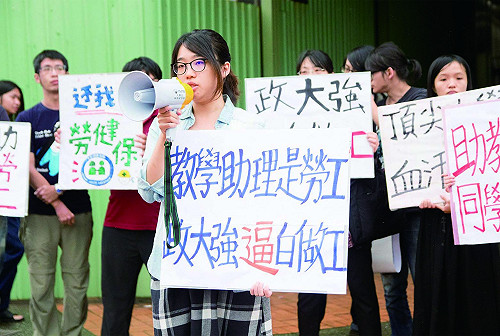 還我
勞健保
教學助理是勞工
政大強逼白做工
政大強
頂尖
血汗
助教
同學